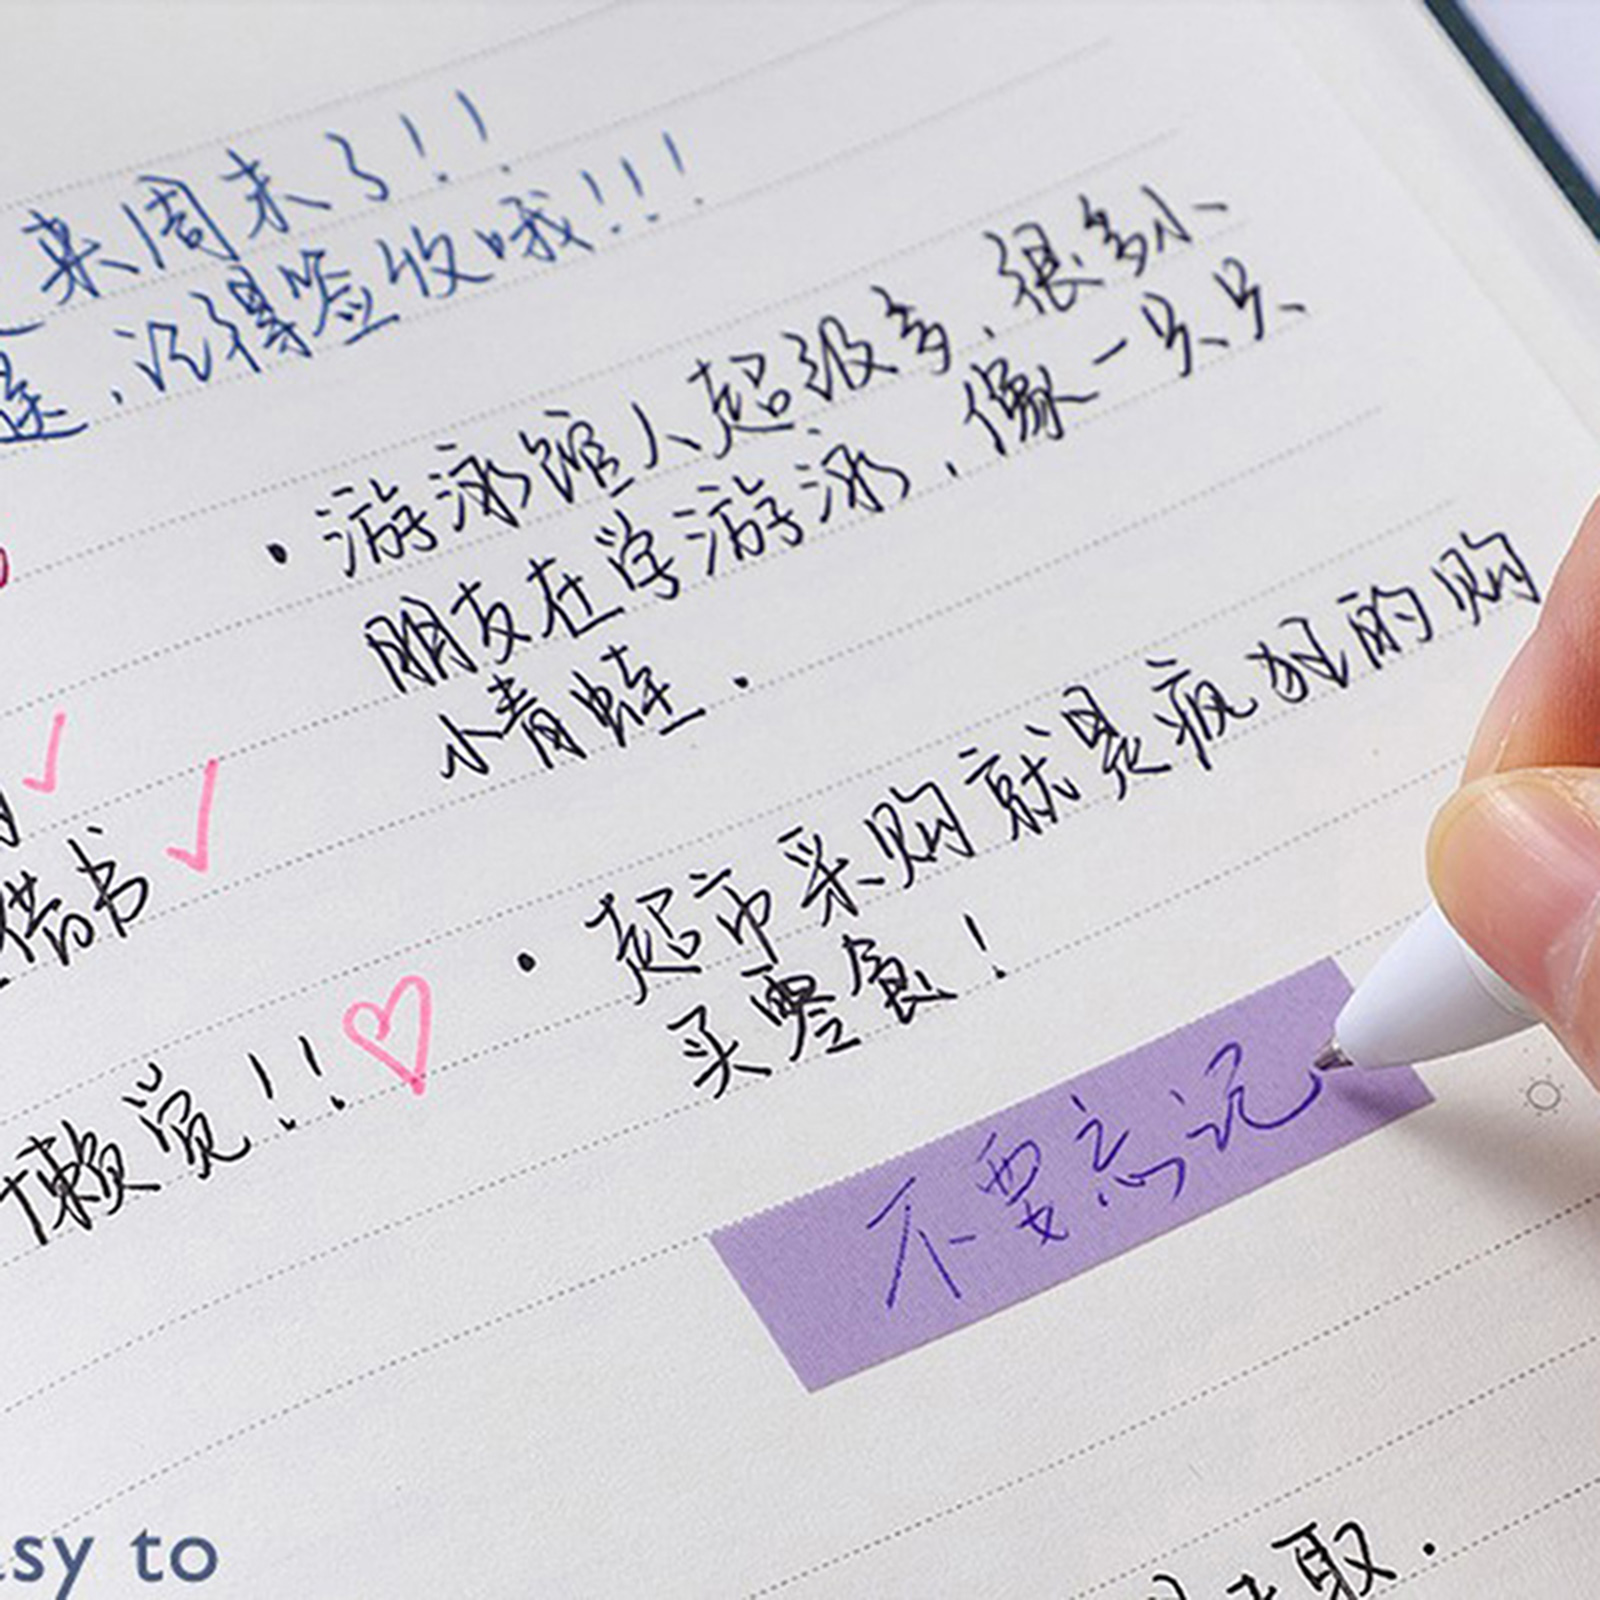 来周末了!!
,记得签收哦!!!
·游泳馆人超级多,很多小
朋友在学游泳,像一只只
小青蛙.
借书
·超市采购就是疯狂的购
买零食!
懒觉!!
不要忘记
取.
sy to